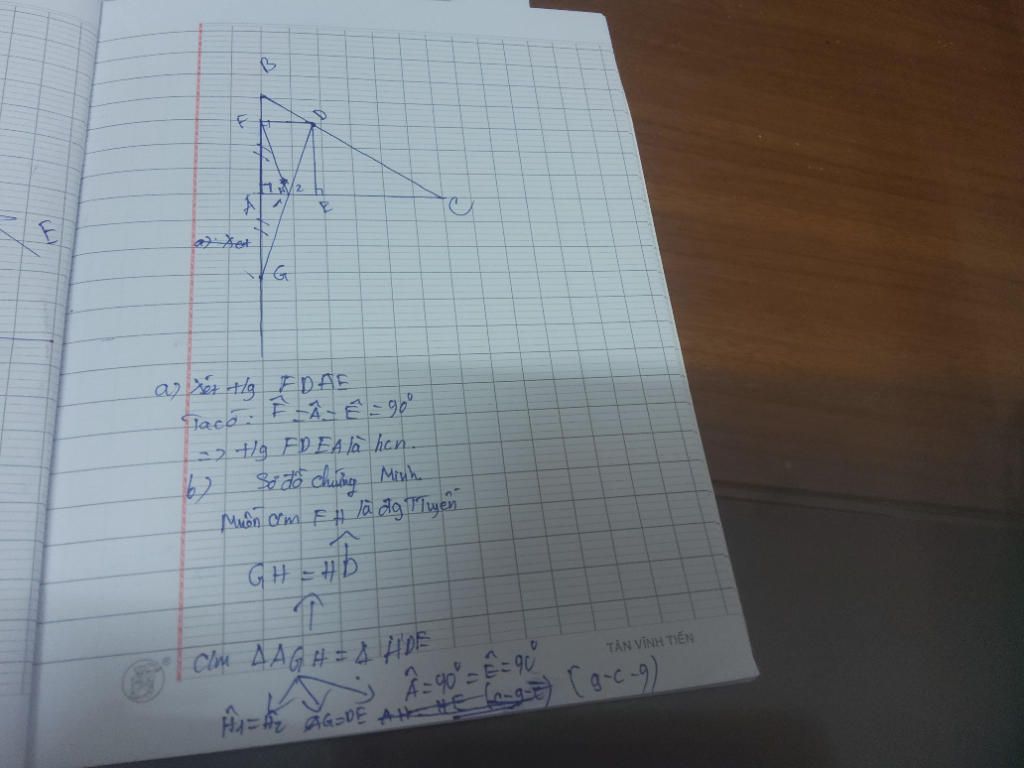 B
F
D
H
1
2
A
E
C
E
a) Xét
G
a) Xét t/g FDAE
Ta có: F̂ = Â = Ê = 90⁰
=> t/g FDEA là hcn.
b) Sơ đồ chứng Minh
Muốn cm FH là đg TTuyến
GH = HD
Cm Δ AGH = Δ HDE
Ĥ1 = Ĥ2 AG = DE Â = 90⁰ = Ê = 90⁰ (g-c-g)
AH = HE (c-g-c)
TÂN VĨNH TIẾN